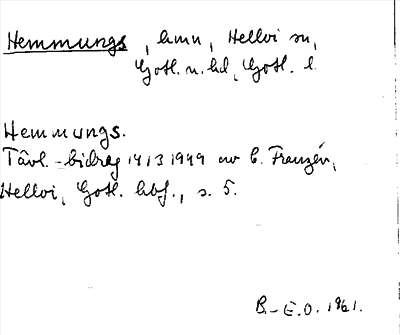 Hemmungs, hmn, Hellvi sn,
Gotl. n. hd, Gotl. l.
Hemmungs.
Tävl.-bidrag 14/3 1949 av C. Franzén,
Hellvi, Gotl. hbf., s. 5.
B.-E.O. 1961.